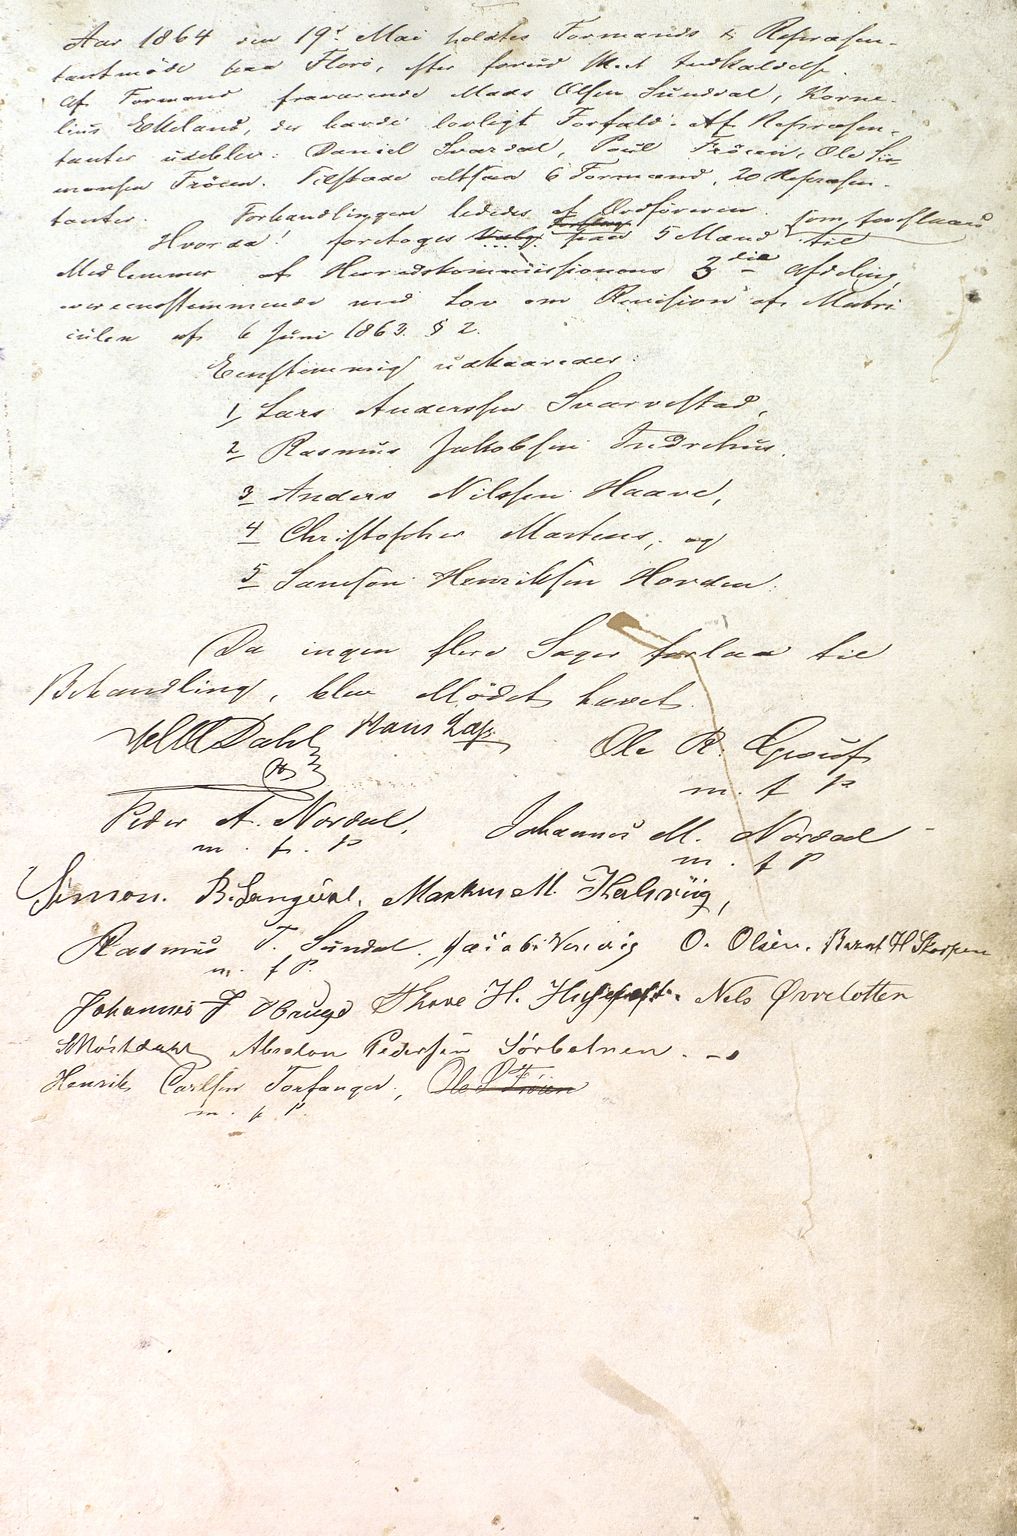 Aar 1864 den 19de Mai holdtes Formands & Repræsen-
tantmöde paa Florö, efter forud skeet Indkaldelse.
Af Formænd fraværende Mads Olsen Sunddal, Korne-
lius Eikeland, der havde lovligt Forfald. Af Repræsen-
tanter udeblev: Daniel Svardal, Paul Fröien, Ole Si-
monsen Fröien. Tilstede altsaa 6 Formænd, 20 Repræsen-
tanter. Forhandlingen lededes af Ordföreren.
Hvorda! foretoges Valg Forslag paa 5 Mænd som foreslaaes til
Medlemmer af Herredskommissionens 3die Afdeling,
overensstemmende med Lov om Revision af Matri-
culen af 6 Juni 1863. § 2.
Eenstemmig udkaaredes:
1 Lars Anderssen Svarvestad,
2 Rasmus Jakobsen Indrehus,
3 Anders Nilssen Haave,
4 Christopher Martens, og
5 Samson Henriksen Hovden.
Da ingen flere Sager forlaa til
Behandling, blev Mödet hævet.
Dahl Hans Ole R.
m. f P
Peder A. Nordal, Johannes M. Nordal
m. f. P m. f P
Simon. B. Markus M.
Rasmus T. Sundal. O. Olsen. Bernt H Skorpen
m. f P.
Johannes J Thore H. Nels Øvrelotten
Absalon Pedersen Sörbotnen.
Henrik Carlsen Torfanger, Ole S Fröien
m. f P.